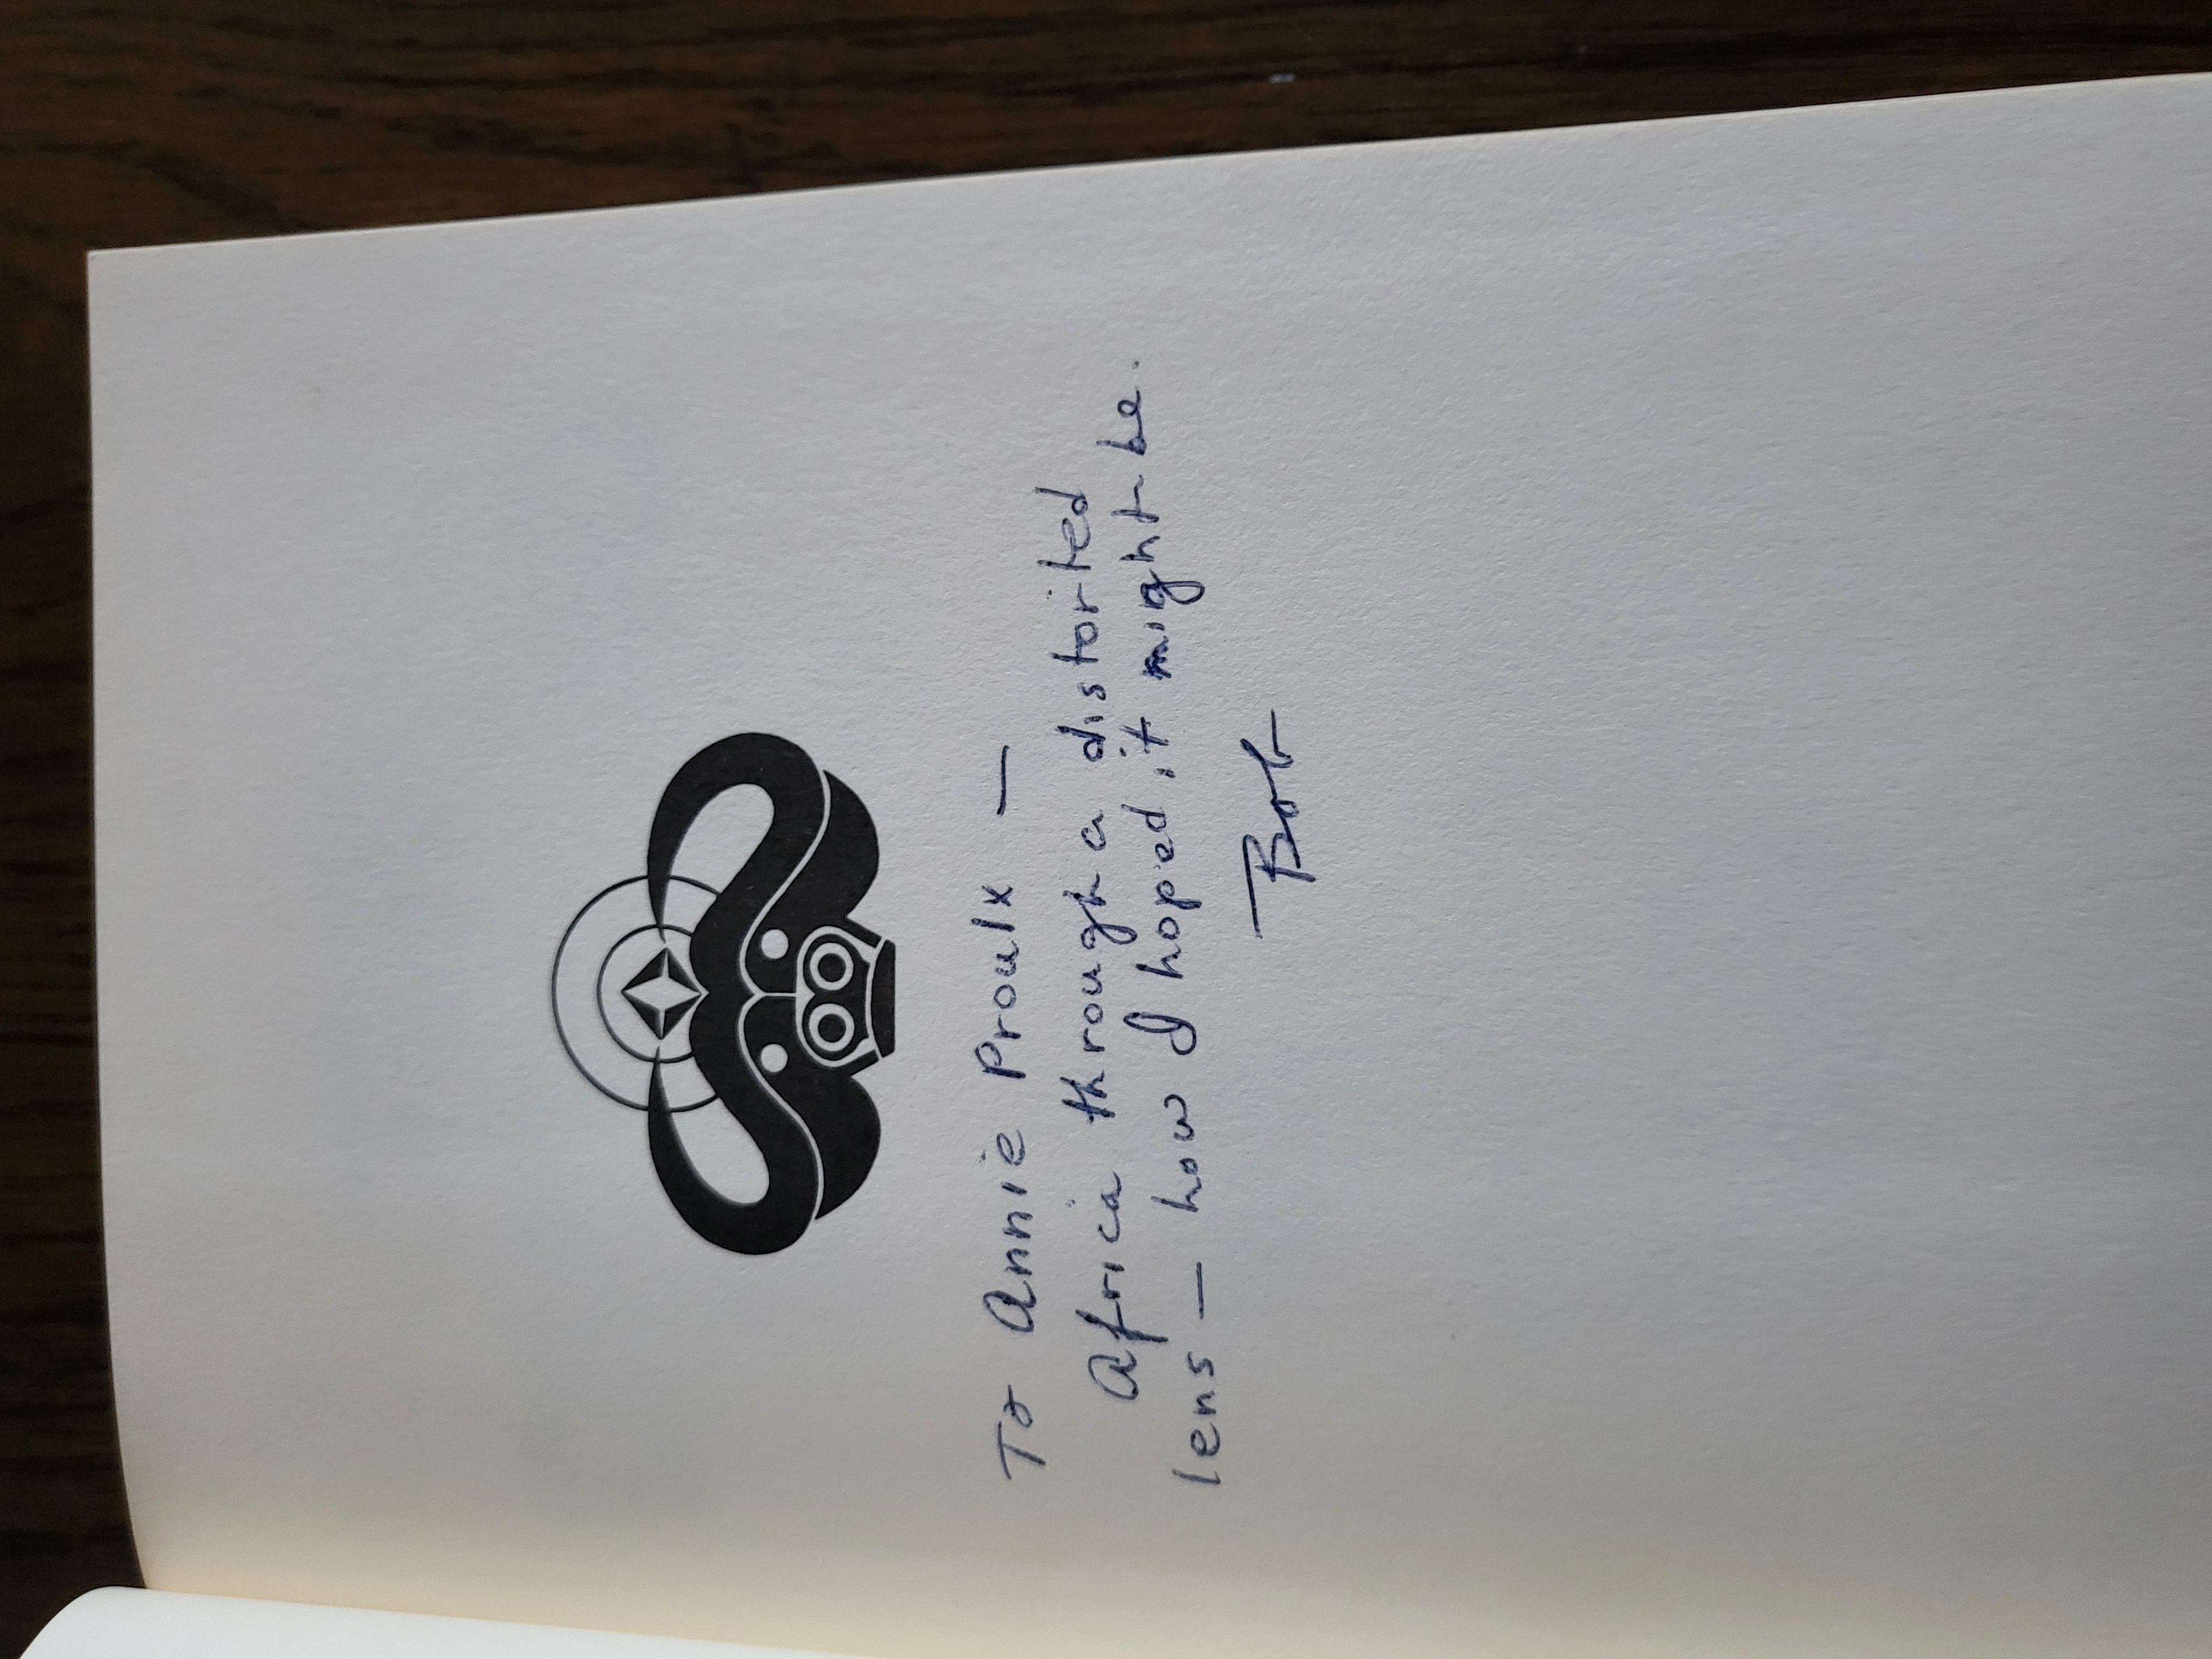 To Annie Proulx —
Africa through a distorted
lens — how I hoped it might be.
Bob